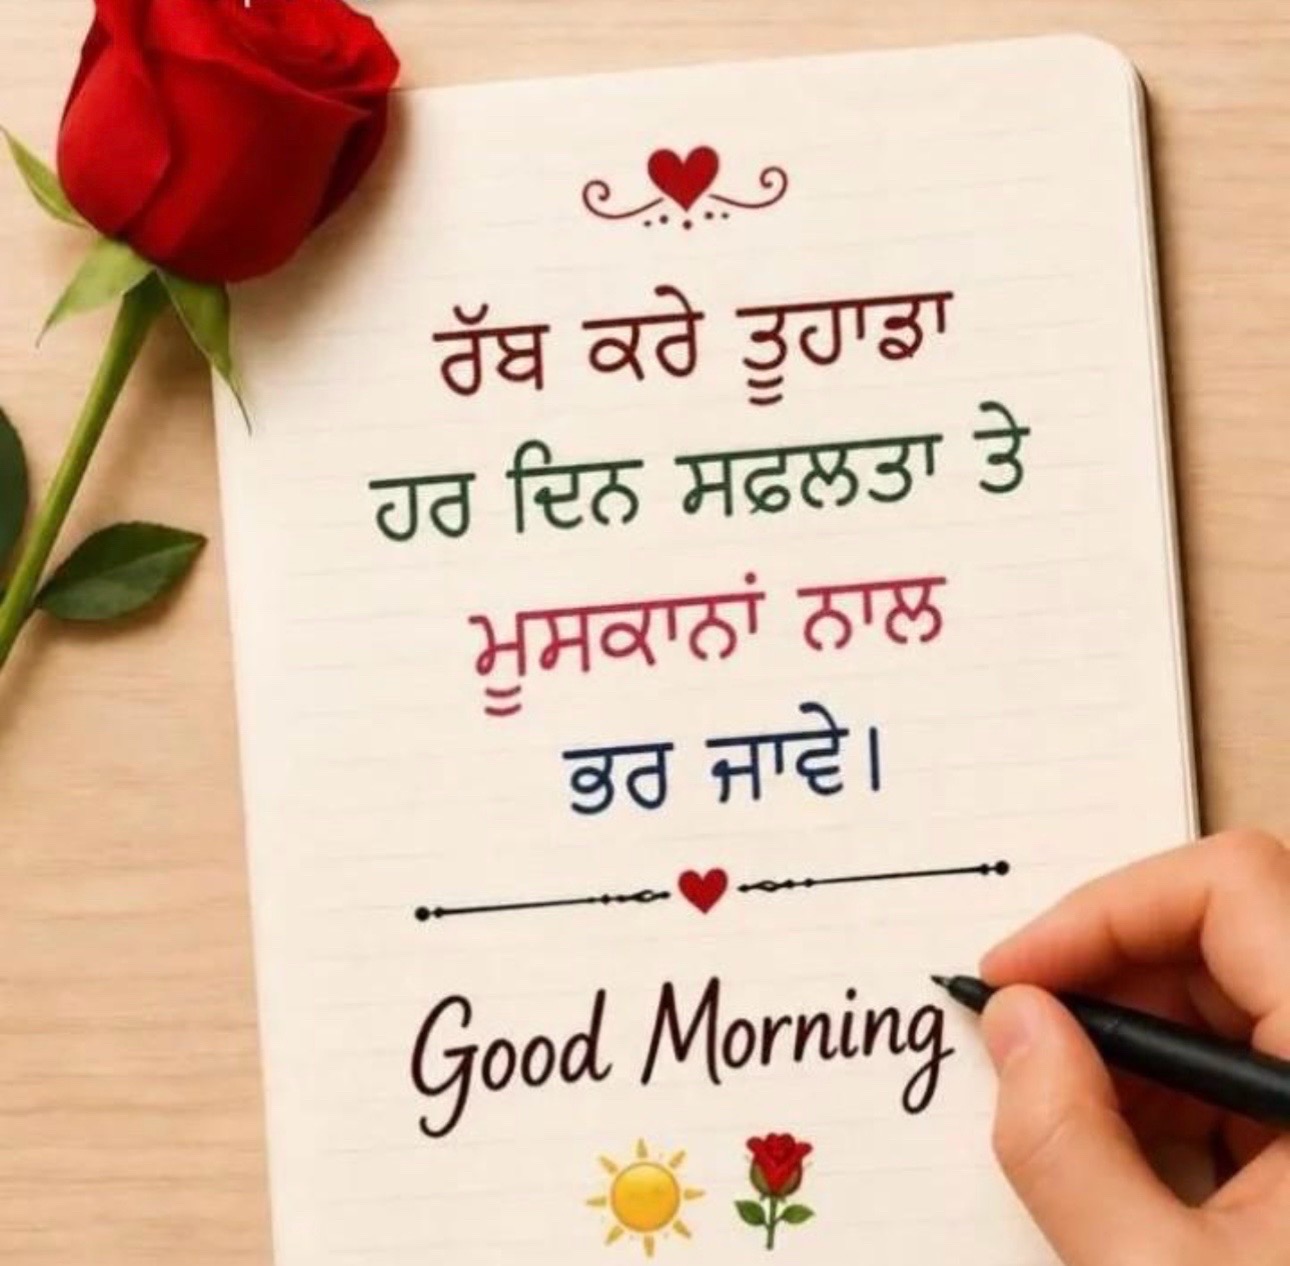 ਰੱਬ ਕਰੇ ਤੂਹਾਡਾ
ਹਰ ਦਿਨ ਸਫ਼ਲਤਾ ਤੇ
ਮੂਸਕਾਨਾਂ ਨਾਲ
ਭਰ ਜਾਵੇ।
Good Morning